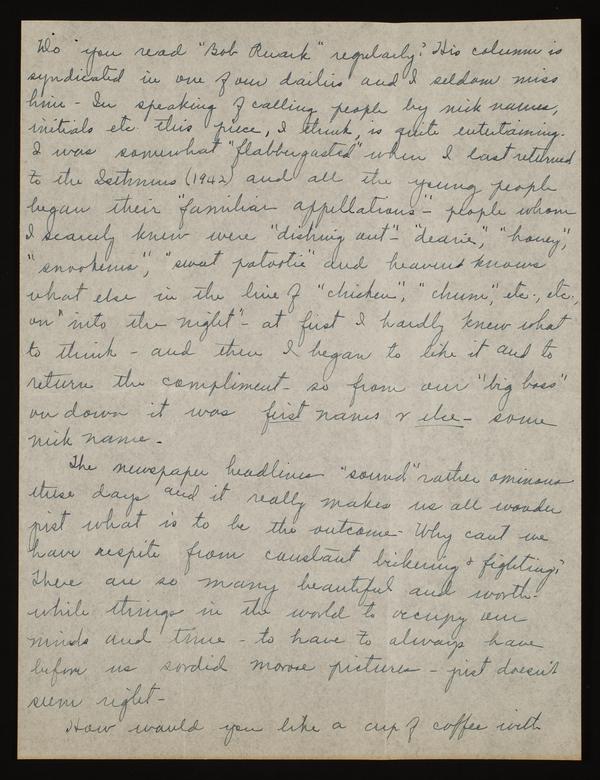 Do you read "Bob Ruark" regularly? His column is
syndicated in one of our dailies and I seldom miss
him - In speaking of calling people by nick names,
initials etc. this piece, I think, is quite entertaining.
I was somewhat "flabbergasted" when I last returned
to the Isthmus (1942) and all the young people
began their "familiar appellations" - people whom
I scarcely knew were "dishing out" - "dearie", "honey",
"snookems", "sweet patootie" and heavens knows
what else in the line of "chicken", "chum", etc., etc.,
on "into the night" - at first I hardly knew what
to think - and then I began to like it and to
return the compliment - so from our "big boss"
on down it was first names & else - some
nick name -
The newspaper headlines "sound" rather ominous
these days and it really makes us all wonder
just what is to be the outcome - Why cant we
have respite from constant bickering & fighting?
There are so many beautiful and worth-
while things in the world to occupy our
minds and time - to have to always have
before us sordid morose pictures - just doesn't
seem right -
How would you like a cup of coffee with